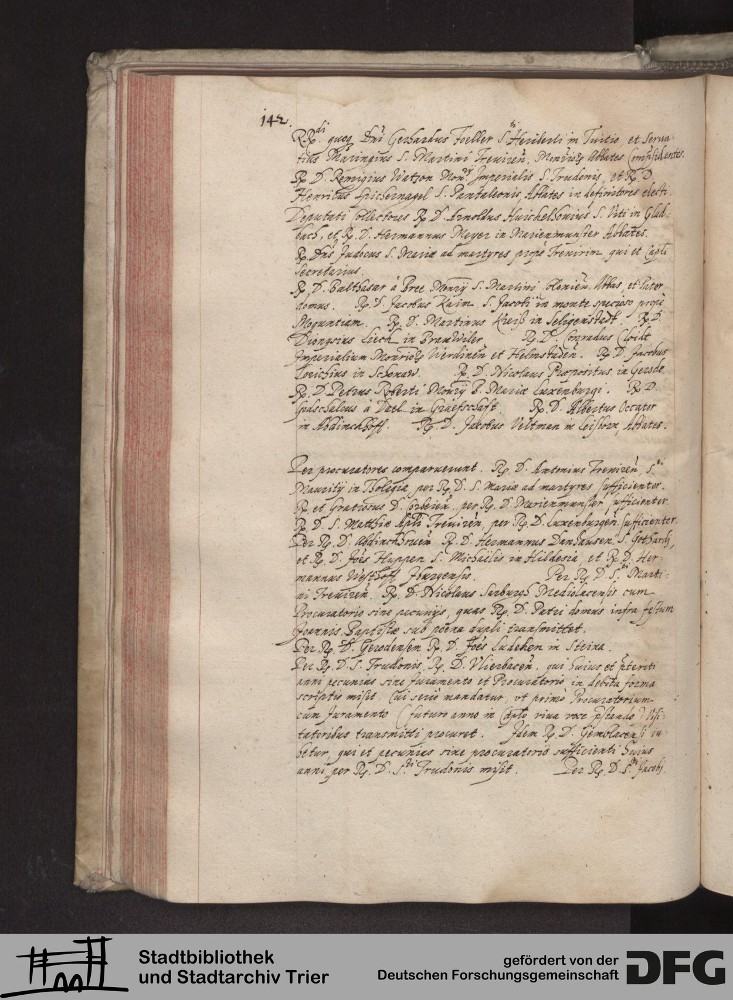 142.
R.di quoq Dni Gerhardus Foeller S.ti Heriberti in Tuitio, et Serua-
tius Maringius S. Martini Treuiren. Monrioru Abbates Conpræsidentes.
R. D. Remigius Watzon Monrij Imperialis S. Trudonis, et R. D.
Henricus Spichernagel S. Pantaleonis, Abbates in definitores electi.
Deputati Collectores R. D. Arnoldus Huichelhouius S. Viti in Glad-
bach, et R. D. Hermannus Meyer in Marienmunster Abbates.
R. Dns Judocus S. Mariæ ad martyres prope Treuirim qui et Capli
Secretarius.
R. D. Balthasar à Bree Monrij S. Martini Colonien. Abbas et Pater
domus. R. D. Jacobus S. Jacobi in monte specioso prope
Moguntiam. R. D. Martinus in Selegenstadt. R. D.
Dionysius in Brauweiler. R. D. Conradus Cloidt
Imperialium Monrioru Werdinen et Helmstaden. R. D. Jacobus
Lorichius in Schonaw. R. D. Nicolaus Præpositus in Gerode
R. D. Petrus Roberti Monrij B. Mariæ Luxenburgi. R. D.
Godschalcus à Datl. in Graefschafft. R. D. Albertus Occater
in Abdinckhoff. R. D. Jacobus Veltman in Leisborn, Abbates.
Per procuratores comparuerunt. R. D. Antonius Treuiren, S.ti
Mauritij in Tholegia per R. D. S. Mariæ ad martyres sufficienter.
R. et Gratiosus D. Corbeien. per R. D. Marienmunster sufficienter
R. D. S. Matthiæ Apli Treuiren, per R. D. Luxenburgen. sufficienter.
Per R. D. Abdinckhouen R. D. Hermannus Danhausen S. Gothardi,
et R. D. Joes Huppen S. Michaelis in Hildesia et R. D. Her-
mannus Westhoff Iburgensis. Per R. D. S.ti Marti-
ni Treuiren. R. D. Nicolaus Saxburgh Mediolacensis cum
Procuratorio sine pecunijs, quas R. D. Patri domus infra festum
Joannis Baptistæ sub poena dupli transmittet.
Per R. D. Gerodensem R. D. Joes Ludeken in Steina.
Per R. D. S. Trudonis, R. D. Vlierbacen. qui huius et præteriti
anni pecunias sine juramento et Procuratorio in debita forma
scriptis misit. Cui serio mandatur, vt primo Procuratorium
cum juramento (futuro anno in Caplo viua voce præstando) Visi-
tatoribus transmitti procuret. Idem R. D. Gemblacensi iu-
betur, qui et pecunias sine procuratorio sufficienti huius
anni per R. D. S.ti Trudonis misit. Per R. D. S.ti Jacobi
Stadtbibliothek
und Stadtarchiv Trier
gefördert von der
Deutschen Forschungsgemeinschaft
DFG